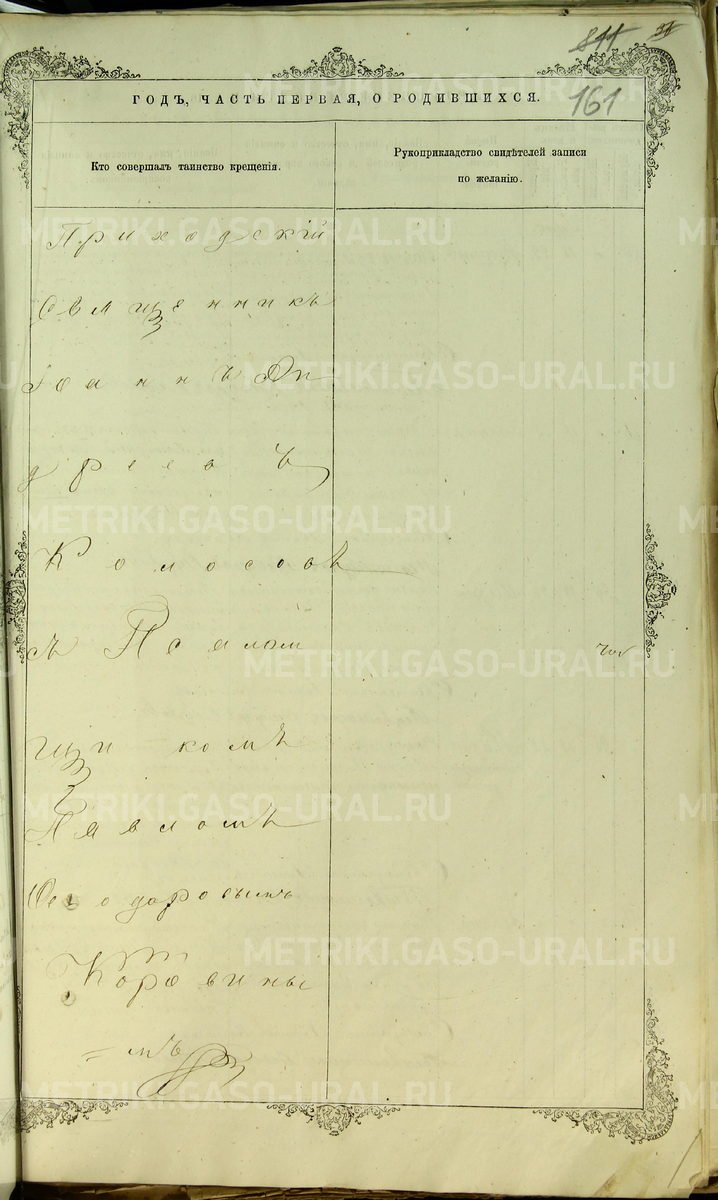 811 31
161
ГОДЪ, ЧАСТЬ ПЕРВАЯ, О РОДИВШИХСЯ.
Кто совершалъ таинство крещенія.
Рукоприкладство свидѣтелей записи
по желанію.
Приходскій
Священникъ
Іоаннъ Ан
дреевъ
съ Псалом
щи-комъ
Павломъ
Ѳеодоровымъ
Коровины
=мъ
METRIKI.GASO-URAL.RU